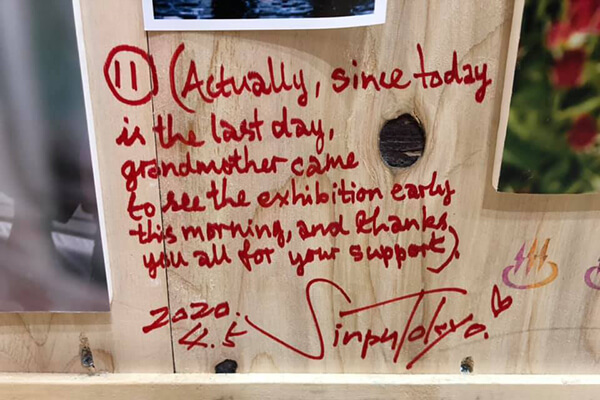 ⑪ (Actually, since today
is the last day,
grandmother came
to see the exhibition early
this morning, and thanks
you all for your support).
2020.
4.5